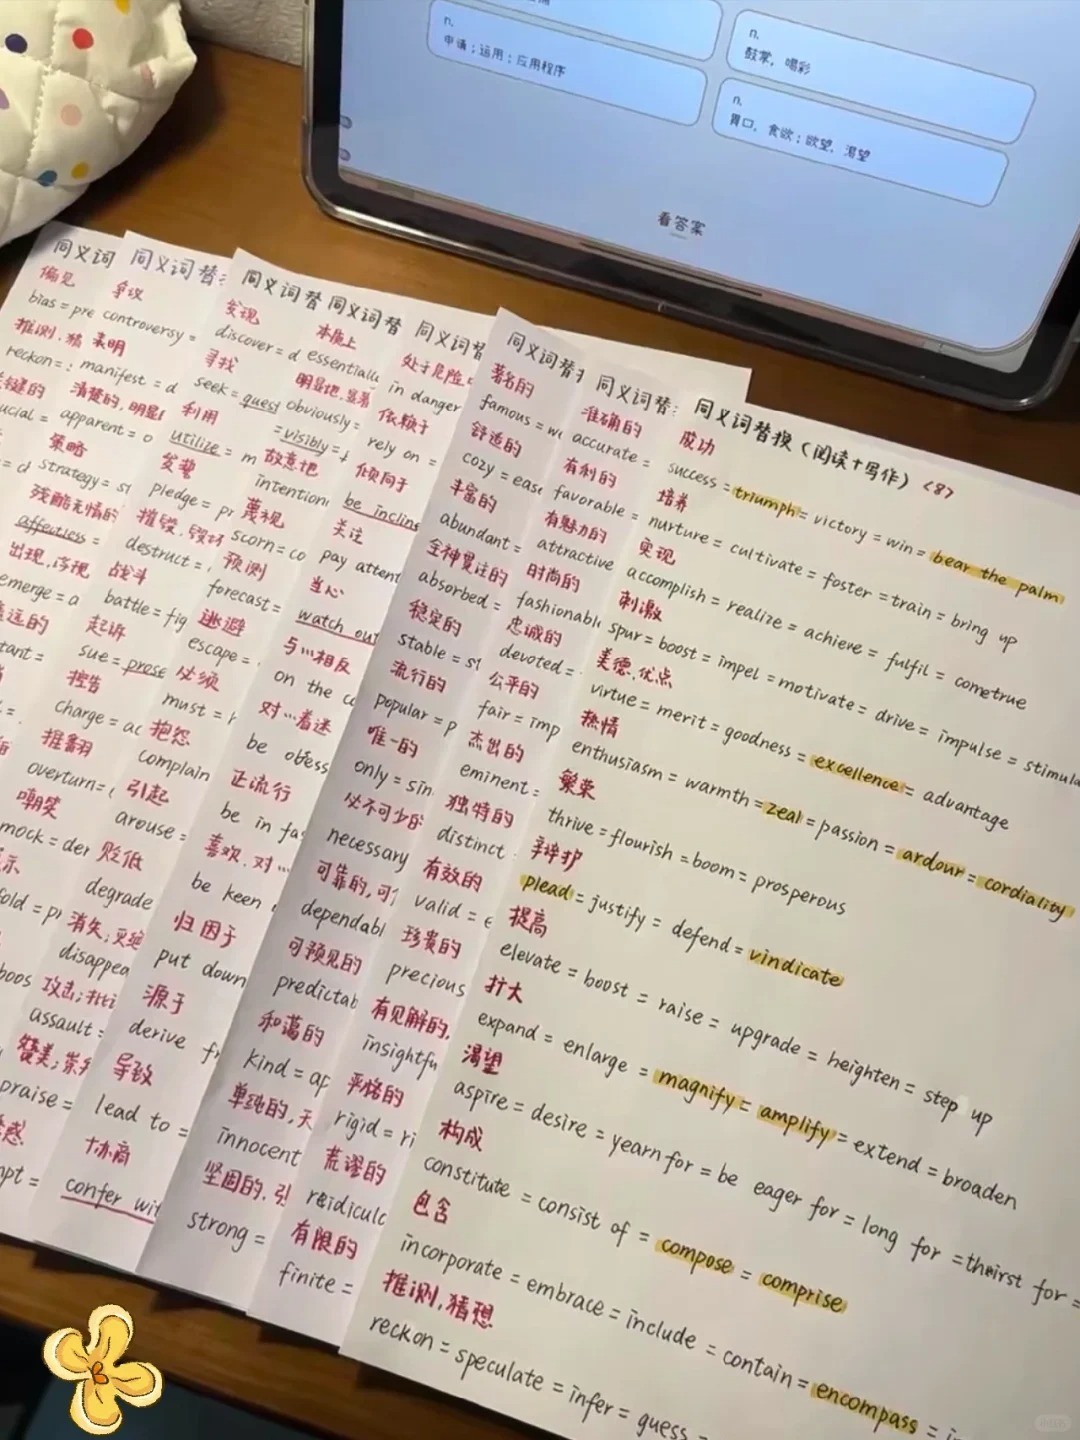 n.
申请；运用；应用程序
n.
鼓掌，喝彩
n.
胃口，食欲；欲望，渴望
看答案
同义词
偏见
bias = pre
推测，猜
reckon =
键的
ucial =
emerge = a
遥远的
tant =
mock = der
fold = p
boos
praise =
mpt =
同义词替
争议
controversy =
表明
manifest = d
清楚的，明显
apparent = o
策略
strategy = st
残酷无情的
affectless =
出现，浮现
战斗
battle = fig
起诉
sue = prose
控告
charge = ac
推翻
overturn =
嘲笑
贬低
degrade
消失；灭绝
disappea
攻击；批评
assault =
赞美；崇
导致
lead to =
协商
confer wit
同义词替
发现
discover = d
寻找
seek = quest
利用
utilize = m
发誓
pledge = pr
摧毁，毁坏
destruct =
预测
forecast =
逃避
escape =
必须
must = h
抱怨
complain
引起
arouse =
归因于
put down
源于
derive fr
同义词替
本质上
essentially
明显地，显著
obviously =
= visibly =
故意地
intention
蔑视
scorn = co
当心
watch out
与…相反
on the co
对…着迷
be obsess
正流行
be in fas
喜欢，对…
be keen
同义词替
处于危险
in danger
依赖于
rely on =
倾向于
be incline
关注
pay attent
同义词替
著名的
famous = we
舒适的
cozy = ease
丰富的
abundant =
全神贯注的
absorbed =
稳定的
stable = st
流行的
popular = p
唯一的
only = sin
必不可少的
necessary
可靠的，可
dependabl
可预见的
predictab
和蔼的
kind = ap
单纯的，天
innocent
坚固的，强
strong =
同义词替
准确的
accurate =
有利的
favorable =
有魅力的
attractive
时尚的
fashionabl
忠诚的
devoted =
公平的
fair = imp
杰出的
eminent =
独特的
distinct
有效的
valid = e
珍贵的
precious
有见解的，
insightfu
严格的
rigid = ri
荒谬的
ridiculo
有限的
finite =
同义词替换（阅读+写作）<8>
成功
success = triumph = victory = win = bear the palm
培养
nurture = cultivate = foster = train = bring up
实现
accomplish = realize = achieve = fulfil = cometrue
刺激
spur = boost = impel = motivate = drive = impulse = stimula
美德，优点
virtue = merit = goodness = excellence = advantage
热情
enthusiasm = warmth = zeal = passion = ardour = cordiality
繁荣
thrive = flourish = boom = prosperous
辩护
plead = justify = defend = vindicate
提高
elevate = boost = raise = upgrade = heighten = step up
扩大
expand = enlarge = magnify = amplify = extend = broaden
渴望
aspire = desire = yearn for = be eager for = long for = thirst for =
构成
constitute = consist of = compose = comprise
包含
incorporate = embrace = include = contain = encompass =
推测，猜想
reckon = speculate = infer = guess =